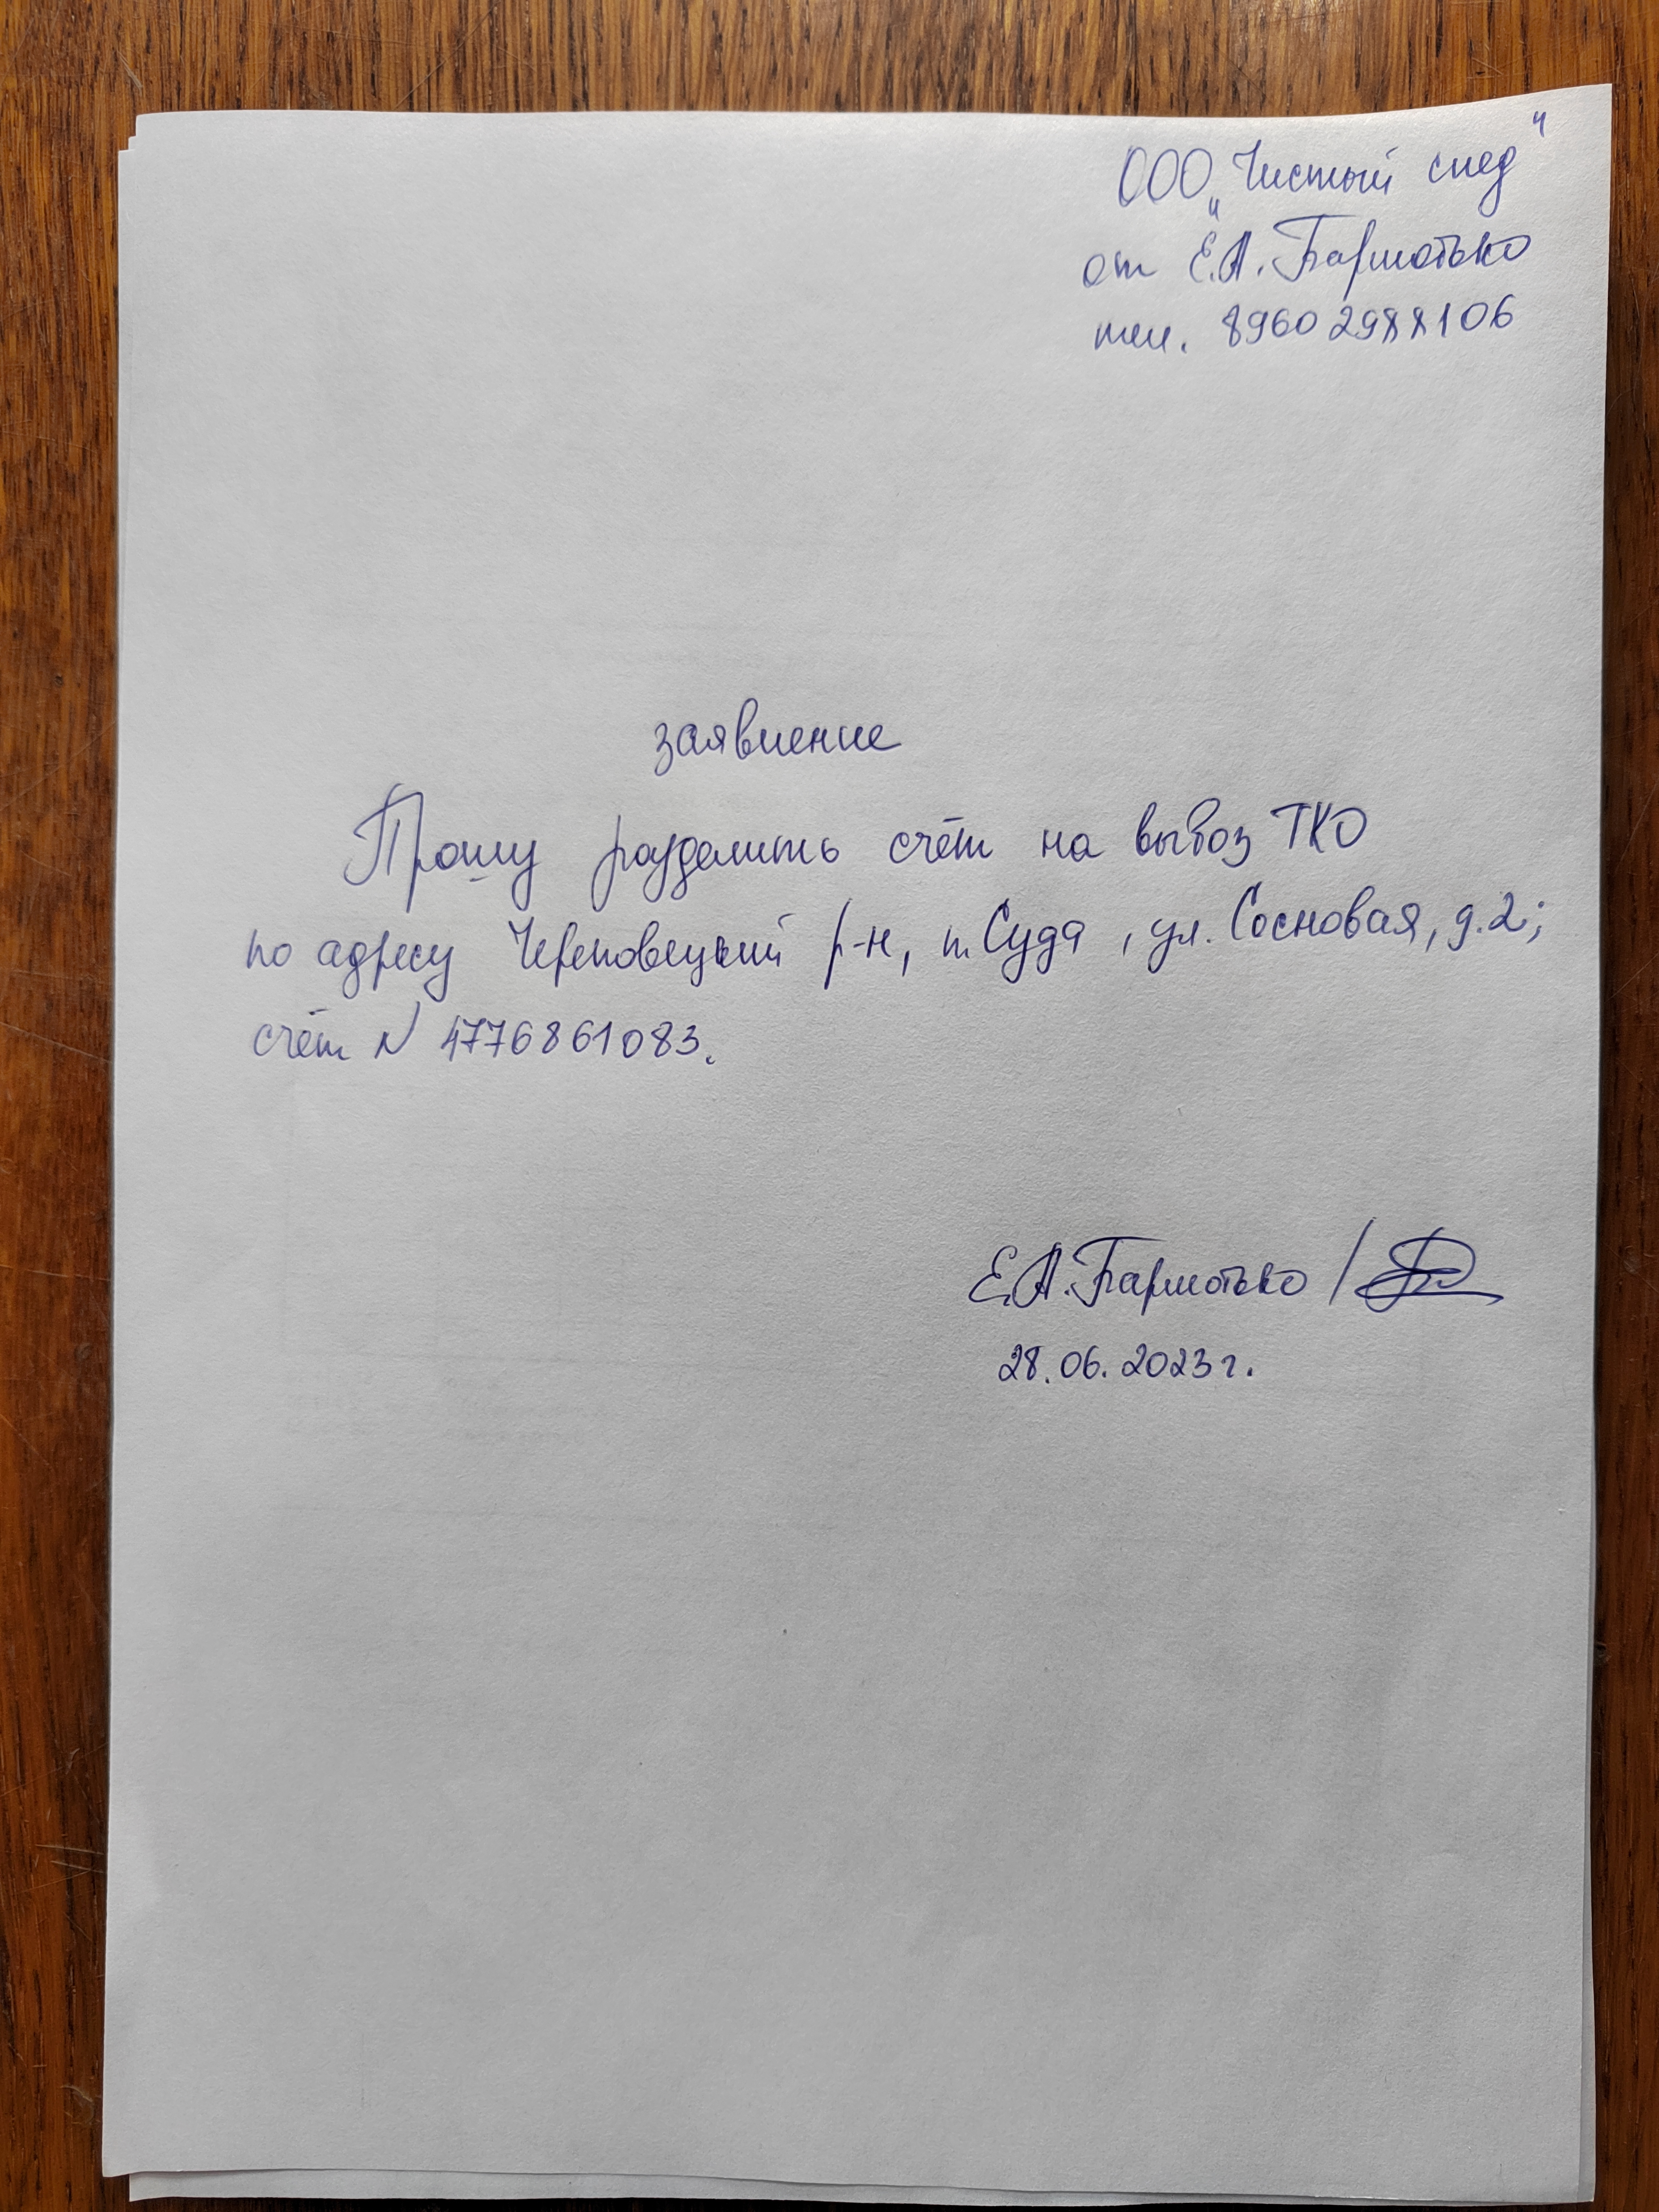 ООО „Чистый след“
от Е.А. Бармотько
тел. 89602988106
заявление
Прошу разделить счёт на вывоз ТКО
по адресу Череповецкий р-н, п. Суда, ул. Сосновая, д.2;
счёт N 4776861083.
Е.А. Бармотько /
28.06.2023г.